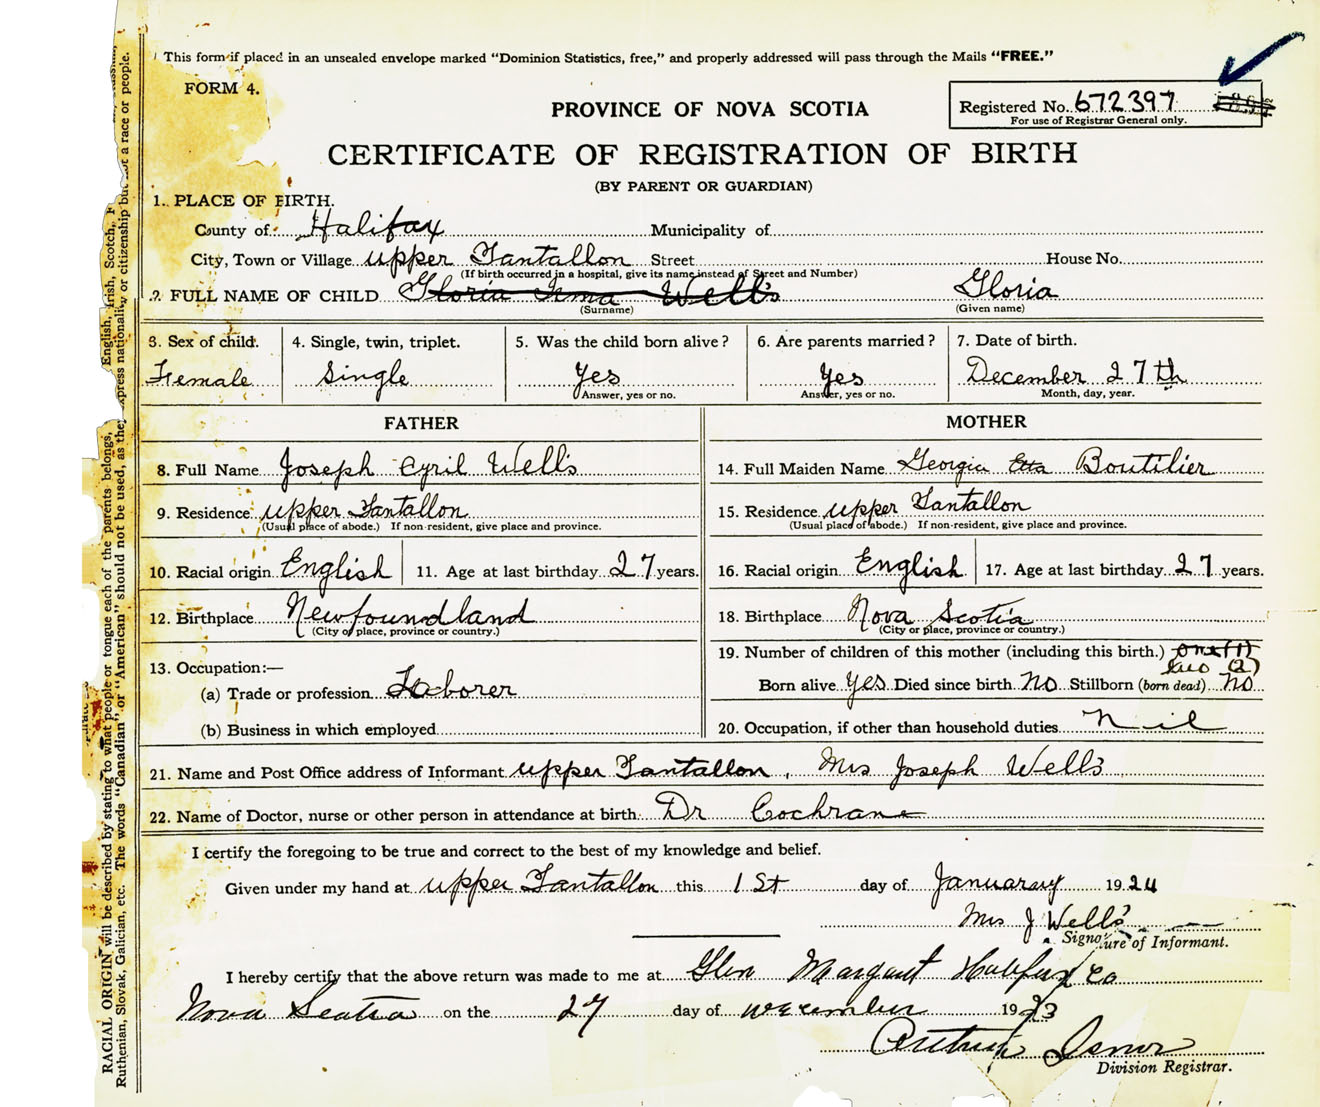 This form if placed in an unsealed envelope marked "Dominion Statistics, free," and properly addressed will pass through the Mails "FREE."
FORM 4.
PROVINCE OF NOVA SCOTIA
Registered No. 672397
For use of Registrar General only.
CERTIFICATE OF REGISTRATION OF BIRTH
(BY PARENT OR GUARDIAN)
1. PLACE OF BIRTH.
County of Halifax Municipality of
City, Town or Village upper Tantallon Street House No.
(If birth occurred in a hospital, give its name instead of Street and Number)
2. FULL NAME OF CHILD Gloria Irma Wells Gloria
(Surname) (Given name)
3. Sex of child. 4. Single, twin, triplet. 5. Was the child born alive? 6. Are parents married? 7. Date of birth.
Female Single Yes Yes December 27th
Answer, yes or no. Answer, yes or no. Month, day, year.
FATHER MOTHER
8. Full Name Joseph Cyril Wells 14. Full Maiden Name Georgia Etta Boutilier
9. Residence upper Tantallon 15. Residence upper Tantallon
(Usual place of abode.) If non-resident, give place and province. (Usual place of abode.) If non-resident, give place and province.
10. Racial origin English 11. Age at last birthday 27 years. 16. Racial origin English 17. Age at last birthday 27 years.
12. Birthplace Newfoundland 18. Birthplace Nova Scotia
(City or place, province or country.) (City or place, province or country.)
13. Occupation:— 19. Number of children of this mother (including this birth.) one (1)
two (2)
(a) Trade or profession Laborer Born alive yes Died since birth No Stillborn (born dead) No
(b) Business in which employed 20. Occupation, if other than household duties Nil
21. Name and Post Office address of Informant upper Tantallon, Mrs Joseph Wells
22. Name of Doctor, nurse or other person in attendance at birth. Dr Cochrane
I certify the foregoing to be true and correct to the best of my knowledge and belief.
Given under my hand at upper Tantallon this 1st day of Januaray 1924
Mrs J Wells
Signature of Informant.
I hereby certify that the above return was made to me at Glen Margaret Halifax Co
Nova Scotia on the 27 day of December 1923
Arthur Isnor
Division Registrar.
RACIAL ORIGIN will be described by stating to what people or tongue each of the parents belongs, English, Irish, Scotch,
Ruthenian, Slovak, Galician, etc. The words "Canadian" or "American" should not be used, as they express nationality or citizenship but not a race or people.